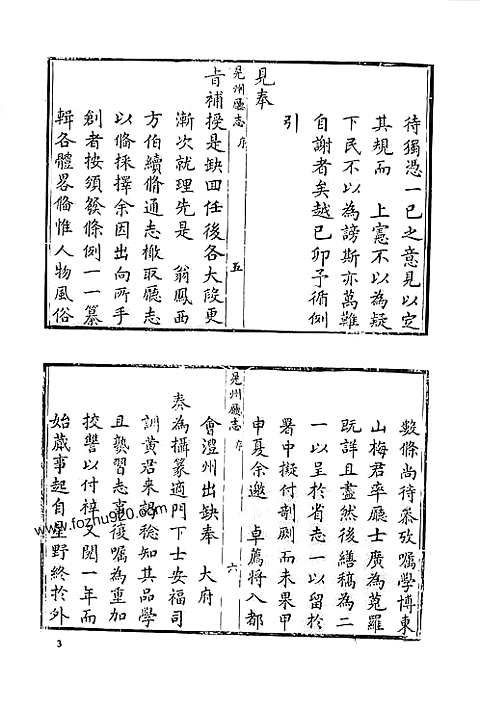 待獨憑一已之意見以定
其規而 上憲不以為疑
下民不以為謗斯亦萬難
自謝者矣越已卯予循例
引
見奉
晃州廳志 序 五
旨補授是缺回任後各大段更
漸次就理先是 翁鳳西
方伯續脩通志檄取廳志
以俻採擇余因出向所手
創者按須發條例一一纂
輯各體畧俻惟人物風俗
數條尚待叅攷嘱學博東
山梅君率廳士廣為蒐羅
既詳且盡然後繕稿為二
一以呈於省志一以留於
署中擬付剞劂而未果甲
申夏余邀 卓薦將入都
晃州廳志 序 六
會澧州出缺奉 大府
奏為攝篆適門下士安福司
訓黃君來謁稔知其品學
且熟習志事復嘱為重加
挍讐以付梓又閱一年而
始蕆事起自星野終於外
www.fozhu920.com
3